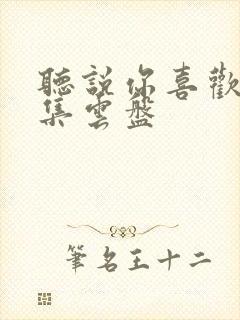 聽説你喜歡
集雲盤
筆名王十二